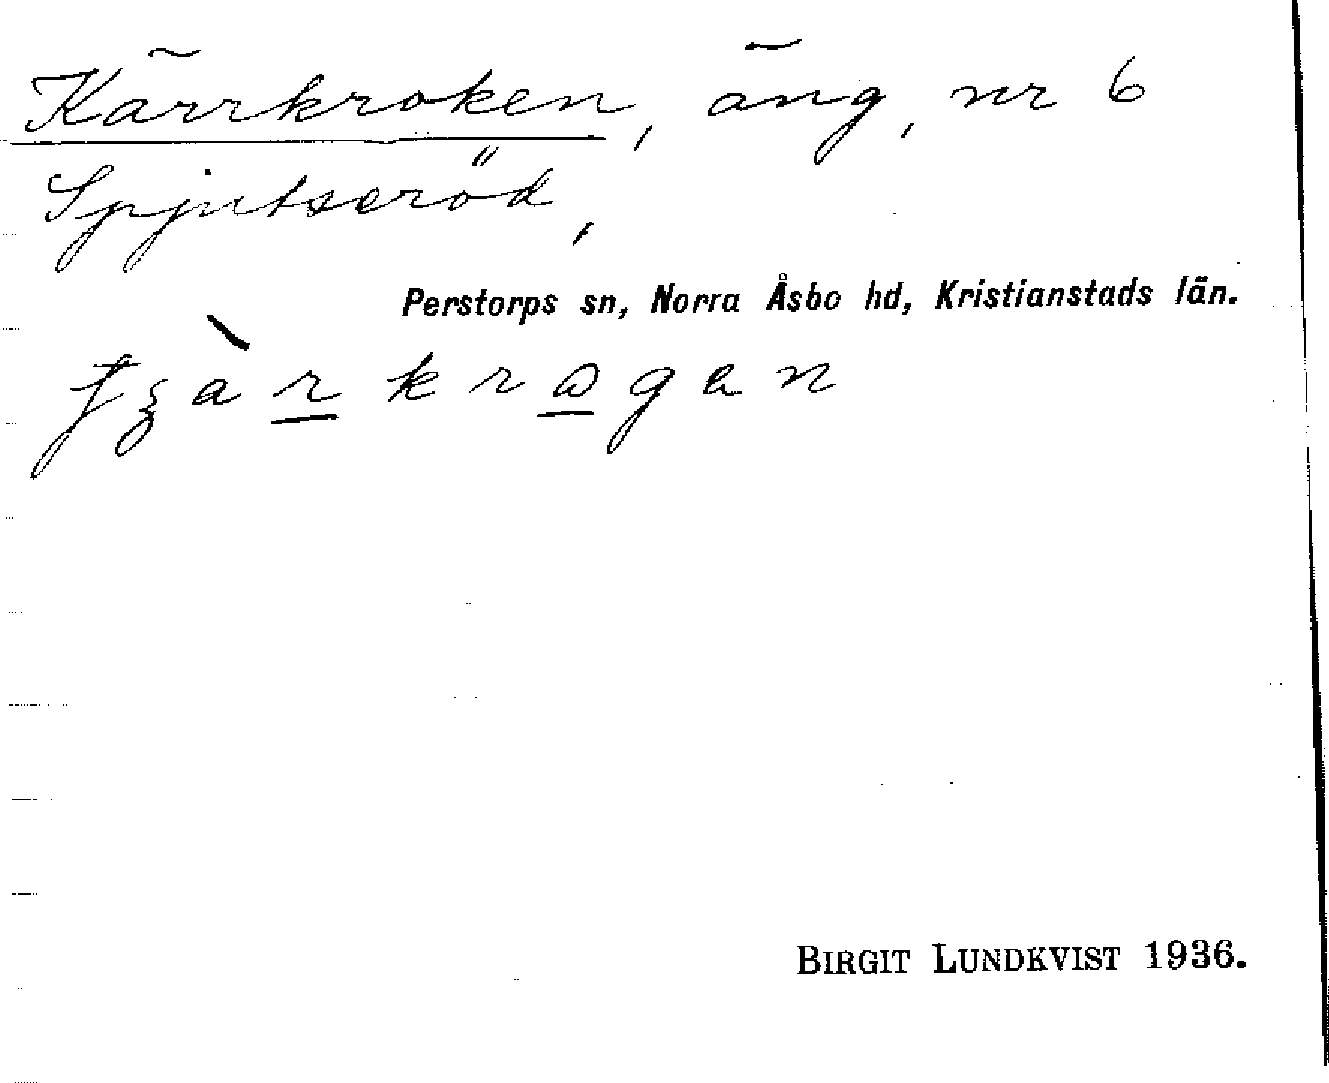 Kärrkroken, äng, nr 6
Spjutseröd,
Perstorps sn, Norra Åsbo hd, Kristianstads län.
BIRGIT LUNDKVIST 1936.